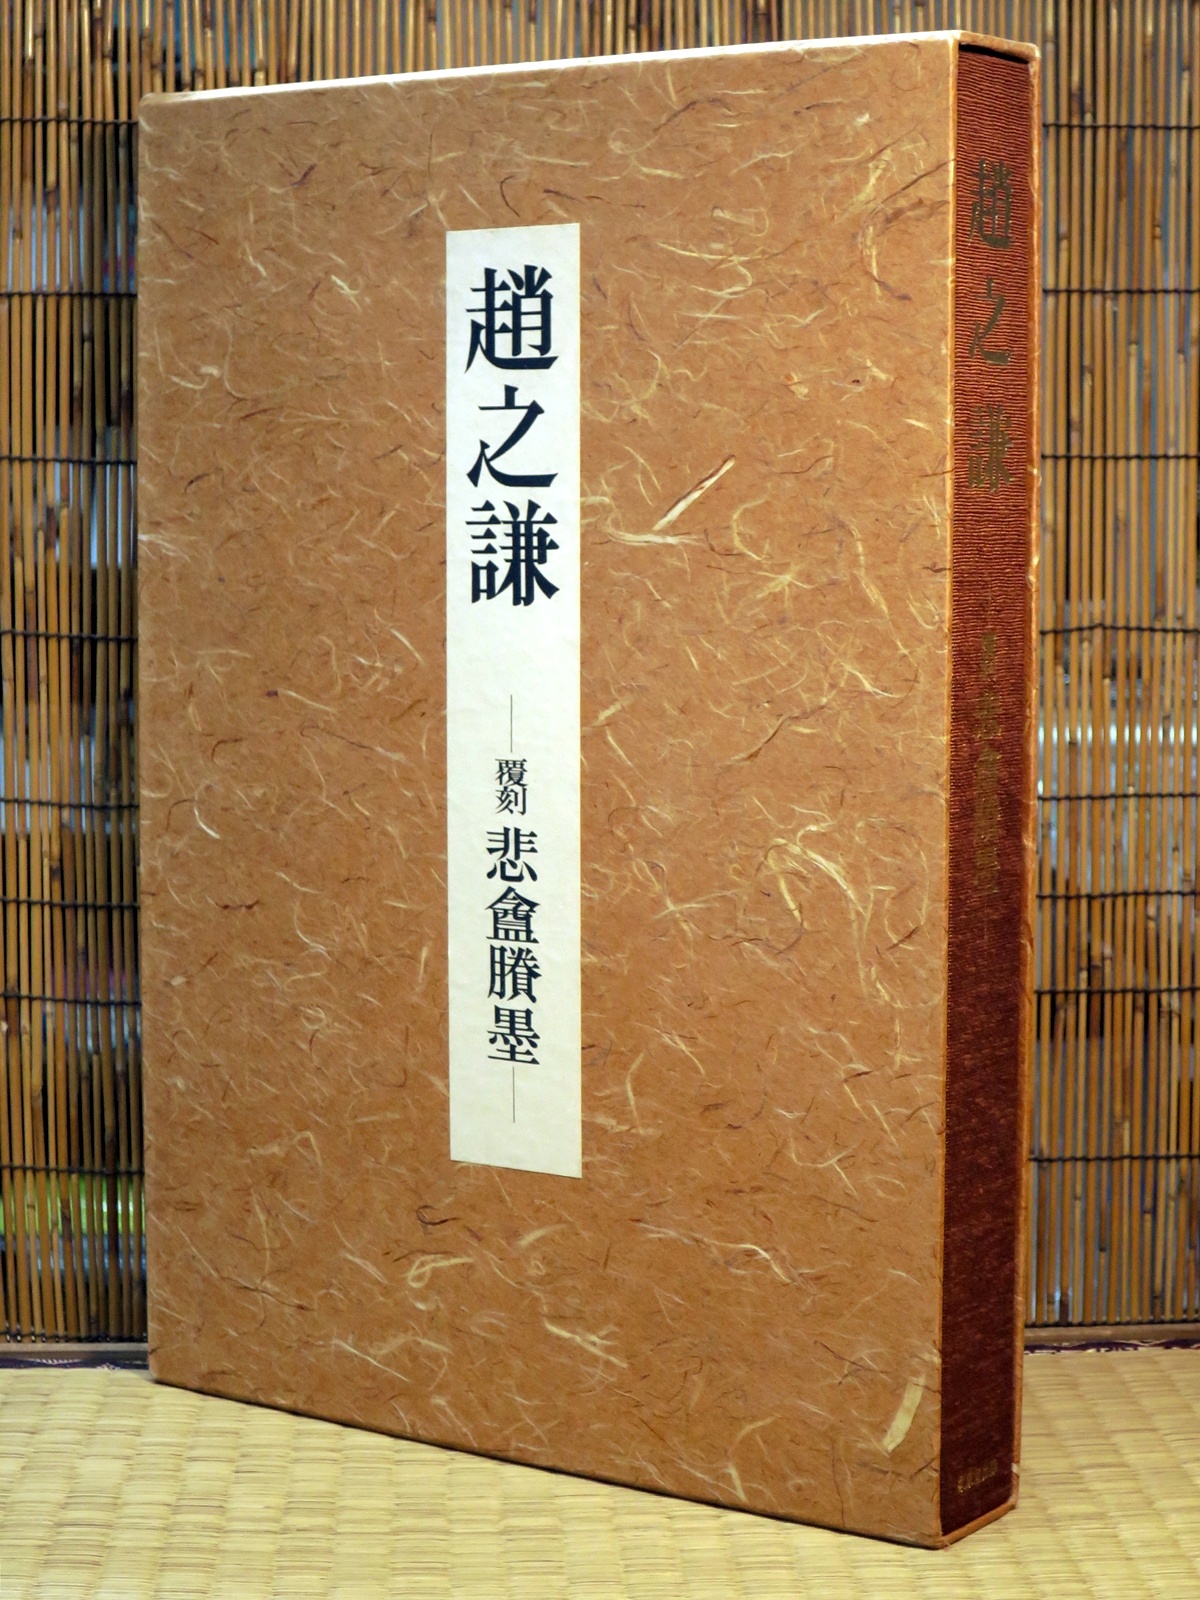 趙之謙
覆刻 悲盦賸墨
趙之謙
悲盦賸墨